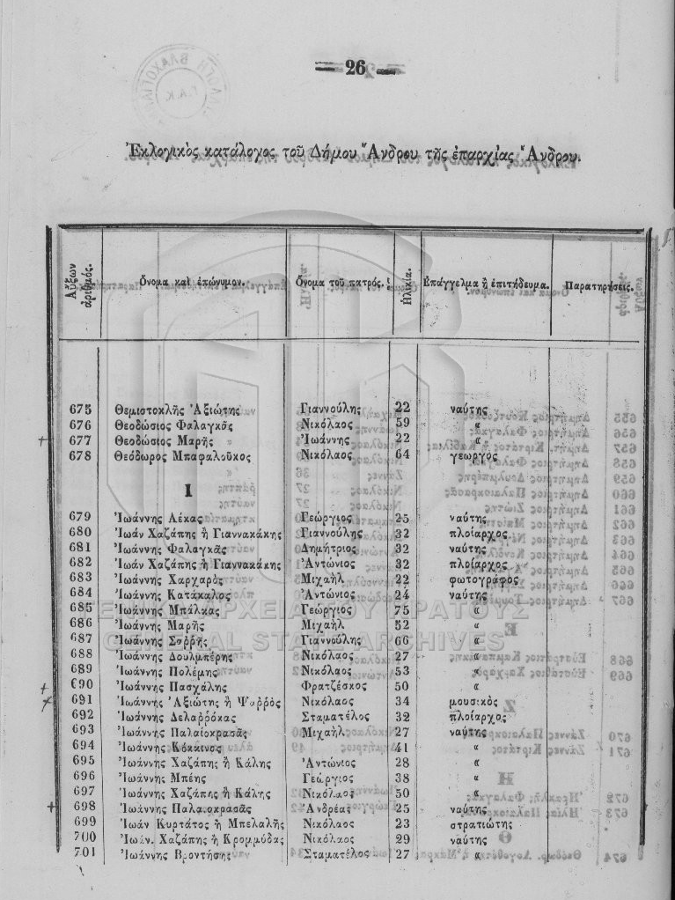 26
Ἐκλογικὸς κατάλογος τοῦ Δήμου Ἄνδρου τῆς ἐπαρχίας Ἄνδρου.
Αὔξων ἀριθμός. Ὄνομα καὶ ἐπώνυμον. Ὄνομα τοῦ πατρός. Ἡλικία. Ἐπάγγελμα ἢ ἐπιτήδευμα. Παρατηρήσεις.
675 Θεμιστοκλῆς Ἀξιώτης Γιαννούλης 22 ναύτης
676 Θεοδώσιος Φαλαγκᾶς Νικόλαος 59 «
677 Θεοδώσιος Μαρῆς Ἰωάννης 22 «
678 Θεόδωρος Μπαφαλοῦκος Νικόλαος 64 γεωργος
Ι
679 Ἰωάννης Λέκας Γεώργιος 25 ναύτης
680 Ἰωάν Χαζάπης ἢ Γιαννακάκης Γιαννούλης 32 πλοίαρχος
681 Ἰωάννης Φαλαγκᾶς Δημήτριος 32 ναύτης
682 Ἰωάν Χαζάπης ἢ Γιαννακάκης Ἀντώνιος 32 πλοίαρχος
683 Ἰωάννης Χαρχαρὸς Μιχαὴλ 22 φωτογράφος
684 Ἰωάννης Κατάκαλος Ἀντώνιος 24 ναύτης
685 Ἰωάννης Μπάλκας Γεώργιος 75 «
686 Ἰωάννης Μαρῆς Μιχαὴλ 52 «
687 Ἰωάννης Σαρρῆς Γιαννούλης 66 «
688 Ἰωάννης Δουλμπέρης Νικόλαος 27 «
689 Ἰωάννης Πολέμης Νικόλαος 53 «
690 Ἰωάννης Πασχάλης Φρατζέσκος 50 «
691 Ἰωάννης Ἀξιώτης ἢ Ψαρρὸς Νικόλαος 34 μουσικὸς
692 Ἰωάννης Δελαρρόκας Σταματέλος 32 πλοίαρχος
693 Ἰωάννης Παλαιοκρασᾶς Μιχαὴλ 27 ναύτης
694 Ἰωάννης Κόκκινος 41 «
695 Ἰωάννης Χαζάπης ἢ Κάλης Ἀντώνιος 28 «
696 Ἰωάννης Μπέης Γεώργιος 38 «
697 Ἰωάννης Χαζάπης ἢ Κάλης Νικόλαος 50 «
698 Ἰωάννης Παλαιοκρασᾶς Ἀνδρέας 25 ναύτης
699 Ἰωάν Κυρτάτος ἢ Μπελαλῆς Νικόλαος 23 στρατιώτης
700 Ἰωάν. Χαζάπης ἢ Κρομμύδας Νικόλαος 29 ναύτης
701 Ἰωάννης Βροντήσης Σταματέλος 27 «
GENERAL STATE ARCHIVES